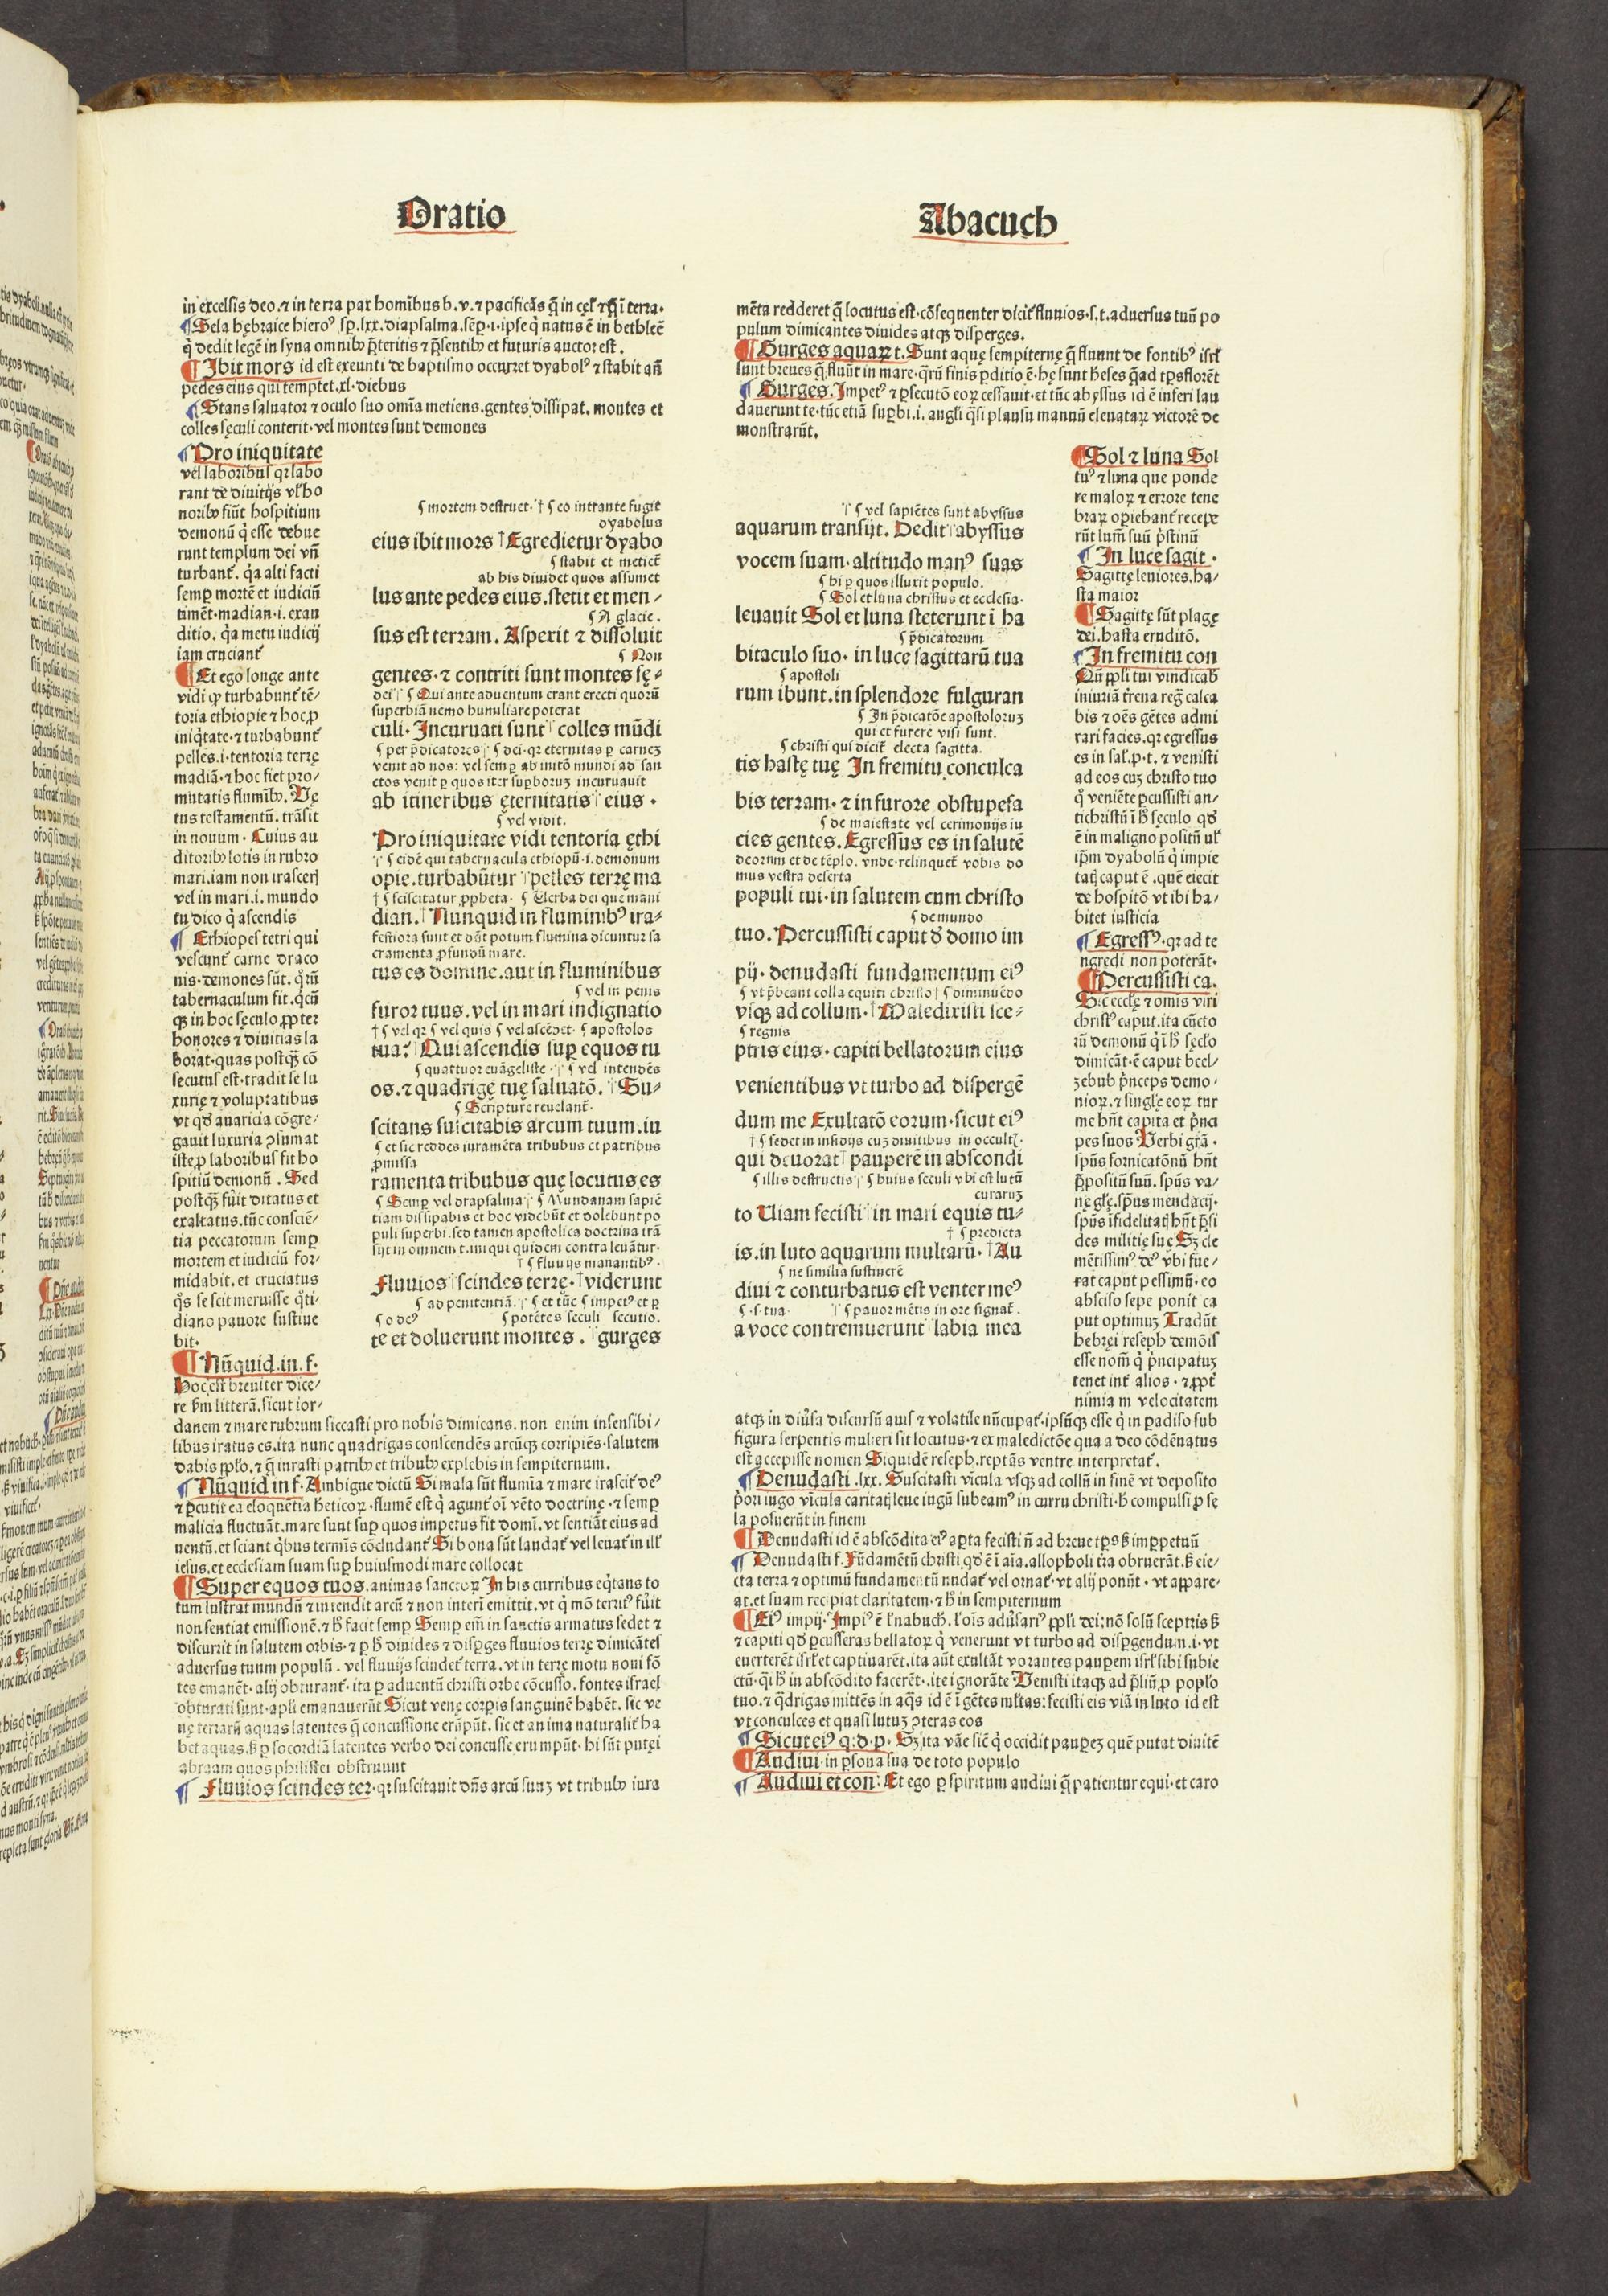 Oratio
Abacuch
in excelsis deo.⁊ in terra pax homībus b.v.⁊ pacificās q̄ in cęl̓ ⁊ q̄ ī terra.
¶ Sela hębraice hieroꝰ sp̄.lxx.diapsalma.sēꝑ.i.ipse q̇ natus ē in bethleē
q̇ dedit legē in syna omnibꝰ p̄teritis ⁊ p̄sentibꝰ et futuris auctor est.
¶ Ibit mors id est exeunti de baptismo occurret dyabolꝰ ⁊ stabit añ
pedes eius qui temptet.xl.diebus
¶ Stans saluator ⁊ oculo suo omīa metiens.gentes dissipat. montes et
colles sęculi conterit.vel montes sunt demones
¶ Pro iniquitate
vel laboribus qꝛ labo
rant de diuitijs vl̓ ho
noribꝰ fiūt hospitium
demonū q̇ esse debue
runt templum dei vñ
turbant̄. q̇a alti facti
semꝑ mortē et iudiciū
timēt.madian.i.exau
ditio. q̇a metu iudicij
iam cruciant̄
¶ Et ego longe ante
vidi ꝙ turbabunt̄ tē⸗
toria ethiopie ⁊ hoc ꝓ
iniq̇tate.⁊ turbabunt̄
pelles.i.tentoria terrę
madiā.⁊ hoc fiet pro⸗
mutatis flumībꝰ. Ve
tus testamentū. trāsit
in nouum. Cuius au
ditoribꝰ lotis in rubro
mari.iam non irascerꝭ
vel in mari.i. mundo
tu dico q̇ ascendis
¶ Ethiopes tetri qui
vescunt̄ carne draco
nis.demones sūt. q̇rū
tabernaculum fit.q̇cū
qꝫ in hoc sęculo ꝓpter
honores ⁊ diuitias la
borat.quas postqꝫ cō
secutus est.tradit se lu
xurię ⁊ voluptatibus
vt qd̓ auaricia cōgre⸗
gauit luxuria ꝯsumat
iste ꝓ laboribus fit ho
spitiū demonū. Sed
postqꝫ fūit ditatus et
exaltatus.tūc consciē⸗
tia peccatorum semꝑ
mortem et iudiciū for⸗
midabit.et cruciatus
q̇s se scit meruisse q̇ti⸗
diano pauore sustine
bit.
¶ Nūquid.in.f.
Hoc est breuiter dice⸗
re s̓m litterā.sicut ior⸗
danem ⁊ mare rubrum siccasti pro nobis dimicans. non enim insensibi⸗
libus iratus es.ita nunc quadrigas conscendēs arcūqꝫ corripiēs.salutem
dabis ꝓpl̓o.⁊ q̄ iurasti patribꝰ et tribubꝰ explebis in sempiternum.
¶ Nūquid in f. Ambigue dictū Si mala sūt flumīa ⁊ mare irascit̄ deꝰ
⁊ ꝑcutit ea eloquētia hęticoꝝ.flumē est q̇ agunt̄ oī vēto doctrinę.⁊ semꝑ
malicia fluctuāt.mare sunt suꝑ quos impetus fit domī.vt sentiāt eius ad
uentū.et sciant q̇bus termīs cōcludant̄ Si bona sūt laudat̄ vel leuat̄ in ill̓
iesus.et ecclesiam suam suꝑ huiusmodi mare collocat
¶ Super equos tuos.animas sanctoꝝ In his curribus eq̇tans to
tum lustrat mundū ⁊ intendit arcū ⁊ non interi emittit.vt q̇ mō territꝰ fūit
non sentiat emissionē.⁊ h̓ facit semꝑ Semꝑ em̄ in sanctis armatus sedet ⁊
discurrit in salutem orbis.⁊ ꝑ h̓ diuides ⁊ disꝑges fluuios terrę dimicātes
aduersus tuum populū. vel fluuijs scindet̄ terra.vt in terrę motu noui fō
tes emanēt. alij obturant̄.ita ꝑ aduentū christi orbe cōcusso. fontes israel
obturati sunt.apl̓i emanauerūt Sicut venę corꝑis sanguinē habēt. sic ve
nę terrarū aquas latentes q̄ concussione erūpūt. sic et anima naturalit̄ ha
bet aquas.s̓ ꝑ socordiā latentes verbo dei concusse erumpūt.hi sūt putei
abraam quos philistei obstruunt
¶ Fluuios scindes ter.qꝛ suscitauit dn̄s arcū suuꝫ vt tribubꝰ iura
¶ mortem destruet. † ¶ eo intrante fugit
dyabolus
eius ibit mors † Egredietur dyabo
¶ stabit et metiet̄
ab his diuidet quos assumet
lus ante pedes eius.stetit et men⸗
¶ A glacie.
sus est terram. Aspexit ⁊ dissoluit
¶ Non
gentes.⁊ contriti sunt montes sę⸗
dei ¶ Qui ante aduentum erant erecti quorū
superbiā nemo humiliare poterat
culi. Incuruati sunt colles mūdi
¶ per p̄dicatores ¶ dei.qꝛ eternitas ꝑ carneꝫ
venit ad nos: vel semꝑ ab initō mundi ad san
ctos venit ꝑ quos iter suꝑborum incuruauit
ab itineribus ęternitatis eius.
¶ vel vidit.
Pro iniquitate vidi tentoria ęthi
¶ eidē qui tabernacula ethiopū.i.demonum
opie.turbabūtur pelles terrę ma
† ¶ sciscitatur ꝓpheta. ¶ Verba dei que mani
dian. † Nunquid in fluminibꝰ ira⸗
festiora sunt et dāt potum flumina dicuntur sa
cramenta ꝓfundū mare.
tus es domine.aut in fluminibus
¶ vel in penis
furor tuus.vel in mari indignatio
† ¶ vel qꝛ ¶ vel quis ¶ vel ascēdet. ¶ apostolos
tua? Qui ascendis suꝑ equos tu
¶ quattuor euāgeliste. ¶ vel intendēs
os.⁊ quadrigę tuę saluatō. Su⸗
¶ Scripture reuelant̄.
scitans suscitabis arcum tuum.iu
¶ et sic reddes iuramēta tribubus et patribus
ꝓmissa
ramenta tribubus quę locutus es
¶ Semꝑ vel diapsalma ¶ Mundanam sapiē
tiam dissipabis et hoc videbūt et dolebunt po
puli superbi.sed tamen apostolica doctrina trā
sijt in omnem t.iniqui quidem contra leuātur.
¶ fluuijs manantibꝰ.
Fluuios scindes terrę. viderunt
¶ ad penitentiā. ¶ et tūc ¶ impetꝰ et ꝑ
¶ o deꝰ ¶ potētes seculi secutio.
te et doluerunt montes. gurges
mēta redderet q̄ locutus est.cōsequenter dicit̄ fluuios.s.t.aduersus tuū po
pulum dimicantes diuides atqꝫ disperges.
¶ Gurges aquaꝝ t. Sunt aquę sempiternę q̄ fluunt de fontibꝰ isrl̓
sunt breues q̄ fluūt in mare.q̇rū finis ꝑditio ē.hę sunt hęses q̄ ad tp̄s florēt
¶ Gurges. Impetꝰ ⁊ ꝑsecutō eoꝝ cessauit.et tūc abyssus id ē inferi lau
dauerunt te.tūc etiā suꝑbi.i. angl̓i q̄si plausu manuū eleuataꝝ victorē de
monstrarūt.
¶ vel sapiētes sunt abyssus
aquarum transijt. Dedit abyssus
vocem suam.altitudo manꝰ suas
¶ hi ꝑ quos illuxit populo.
¶ Sol et luna christus et ecclesia.
leuauit Sol et luna steterunt ī ha
¶ p̄dicatorum
bitaculo suo. in luce sagittarū tua
¶ apostoli
rum ibunt.in splendore fulguran
¶ In p̄dicatōe apostoloruꝫ
qui et furere visi sunt.
¶ christi qui dicit̄ electa sagitta.
tis hastę tuę In fremitu conculca
bis terram.⁊ in furore obstupefa
¶ de maiestate vel cerimonijs iu
cies gentes. Egressus es in salutē
deorum et de tēplo. vnde.relinquet̄ vobis do
mus vestra deserta
populi tui.in salutem cum christo
¶ de mundo
tuo. Percussisti caput d̓ domo im
pij. denudasti fundamentum eiꝰ
¶ vt p̄beant colla equiti christo † ¶ diminuēdo
vsqꝫ ad collum. † Maledixisti sce⸗
¶ regnis
ptris eius.capiti bellatorum eius
venientibus vt turbo ad dispergē
dum me Exultatō eorum.sicut eiꝰ
† ¶ sedet in insidijs cuꝫ diuitibus in occultꝭ.
qui deuorat pauperē in abscondi
¶ illis destructis ¶ huius seculi vbi est lutū
curaruꝫ
to Uiam fecisti in mari equis tu⸗
† ¶ predicta
is.in luto aquarum multarū. † Au
¶ ne similia sustinerē
diui ⁊ conturbatus est venter meꝰ
¶.s.tua. ¶ pauor mētis in ore signat̄.
a voce contremuerunt labia mea
¶ Sol ⁊ luna Sol
tuꝰ ⁊ luna que ponde
re maloꝝ ⁊ errore tene
braꝝ oꝑiebant̄ recepe
rūt lum̄ suū p̓stinū
¶ In luce sagit.
Sagittę leuiores.ha⸗
sta maior
¶ Sagitte sūt plage
dei.hasta eruditō.
¶ In fremitu con
Qn̄ ꝓpl̓i tui vindicab̓
iniuriā t̓rena reg̃ calca
bis ⁊ oēs gētes admi
rari facies.qꝛ egressus
es in sal̓.p.t. ⁊ venisti
ad eos cuꝫ christo tuo
q̇ veniēte ꝑcussisti an⸗
tichristū ī h̓ sęculo qd̓
ē in maligno positū vl̓
ip̄m dyabolū q̇ impie
tatꝭ caput ē.quē eiecit
de hospitō vt ibi ha⸗
bitet iusticia
¶ Egressꝰ.qꝛ ad te
ngredi non poterāt.
¶ Percussisti ca.
Sic eccl̓ę ⁊ omīs viri
christꝰ caput.ita cūcto
rū demonū q̇ ī h̓ sęcl̓o
dimicāt.ē caput beel⸗
zebub p̓nceps demo⸗
nioꝝ.⁊ singl̓ę eoꝝ tur
me hn̄t capita et p̓nci
pes suos Verbi grā.
sp̄ūs fornicatōnū hn̄t
p̄positū suū. sp̄ūs va⸗
nę gl̓ę.sp̄ūs mendacij.
sp̄ūs īfidelitatꝭ hn̄t p̄si
des militię suę Sꝫ cle
mētissimꝰ deꝰ vbi fue⸗
rat caput pessimū.eo
absciso sepe ponit ca
put optimuꝫ Tradūt
hebręi reseph demōis
esse nom̄ q̇ p̓ncipatuꝫ
tenet int̄ alios.⁊ ꝓpt̄
nimiam velocitatem
atqꝫ in diūsa discursū auis ⁊ volatile nūcupat̄.ipsūqꝫ esse q̇ in ꝑadiso sub
figura serpentis mulieri sit locutus.⁊ ex maledictōe qua a deo cōdēnatus
est accepisse nomen Siquidē reseph.reptās ventre interpretat̄.
¶ Denudasti.lxx. Suscitasti vīcula vsqꝫ ad collū in finē vt deposito
p̓ori iugo vīcula caritatꝭ leue iugū subeamꝰ in curru christi.h̓ compulsi ꝑ sę
la posuerūt in finem
¶ Denudasti id ē abscōdita eiꝰ aꝑta fecisti n̄ ad breue tp̄s s̓ imꝑpetuū
¶ Denudasti f. Fūdamētū christi qd̓ ē ī aīa.allopholi t̓ra obruerāt.s̓ eie⸗
cta terra ⁊ optimū fundamentū nudat̄ vel ornat̄.vt alij ponūt. vt appare⸗
at.et suam recipiat claritatem.⁊ h̓ in sempiternum
¶ Eiꝰ impij. Impiꝰ ē l̓ nabuch̓.l̓ oīs aduersariꝰ ꝓpl̓i dei:nō solū sceptris s̓
⁊ capiti qd̓ ꝑcusseras bellatoꝝ q̇ venerunt vt turbo ad disꝑgendum.i.vt
euerterēt isrl̓ et captiuarēt.ita aūt exultāt vorantes pauꝑem isrl̓ sibi subie
ctū.q̇si h̓ in abscōdito facerēt.ite ignorāte Venisti itaqꝫ ad p̄liū ꝓ popl̓o
tuo.⁊ q̇drigas mittēs in aq̇s id ē ī gētes ml̓tas: fecisti eis viā in luto id est
vt conculces et quasi lutuꝫ ꝯteras eos
¶ Sicut eiꝰ q.d.p. Sꝫ ita vāe sic̄ q̇ occidit pauꝑeꝫ quē putat diuitē
¶ Audiui.in ꝑsona sua de toto populo
¶ Audiui et con: Et ego ꝑ spiritum audiui q̄ patientur equi.et caro